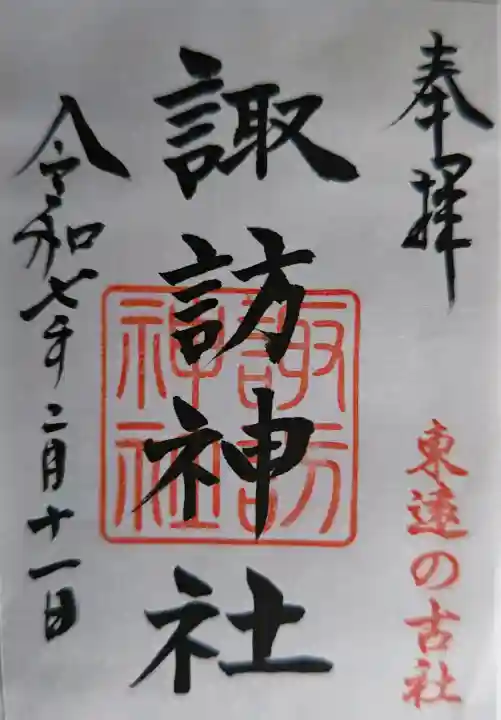 奉拝
東遠の古社
諏訪神社
諏訪
神社
令和七年二月十一日